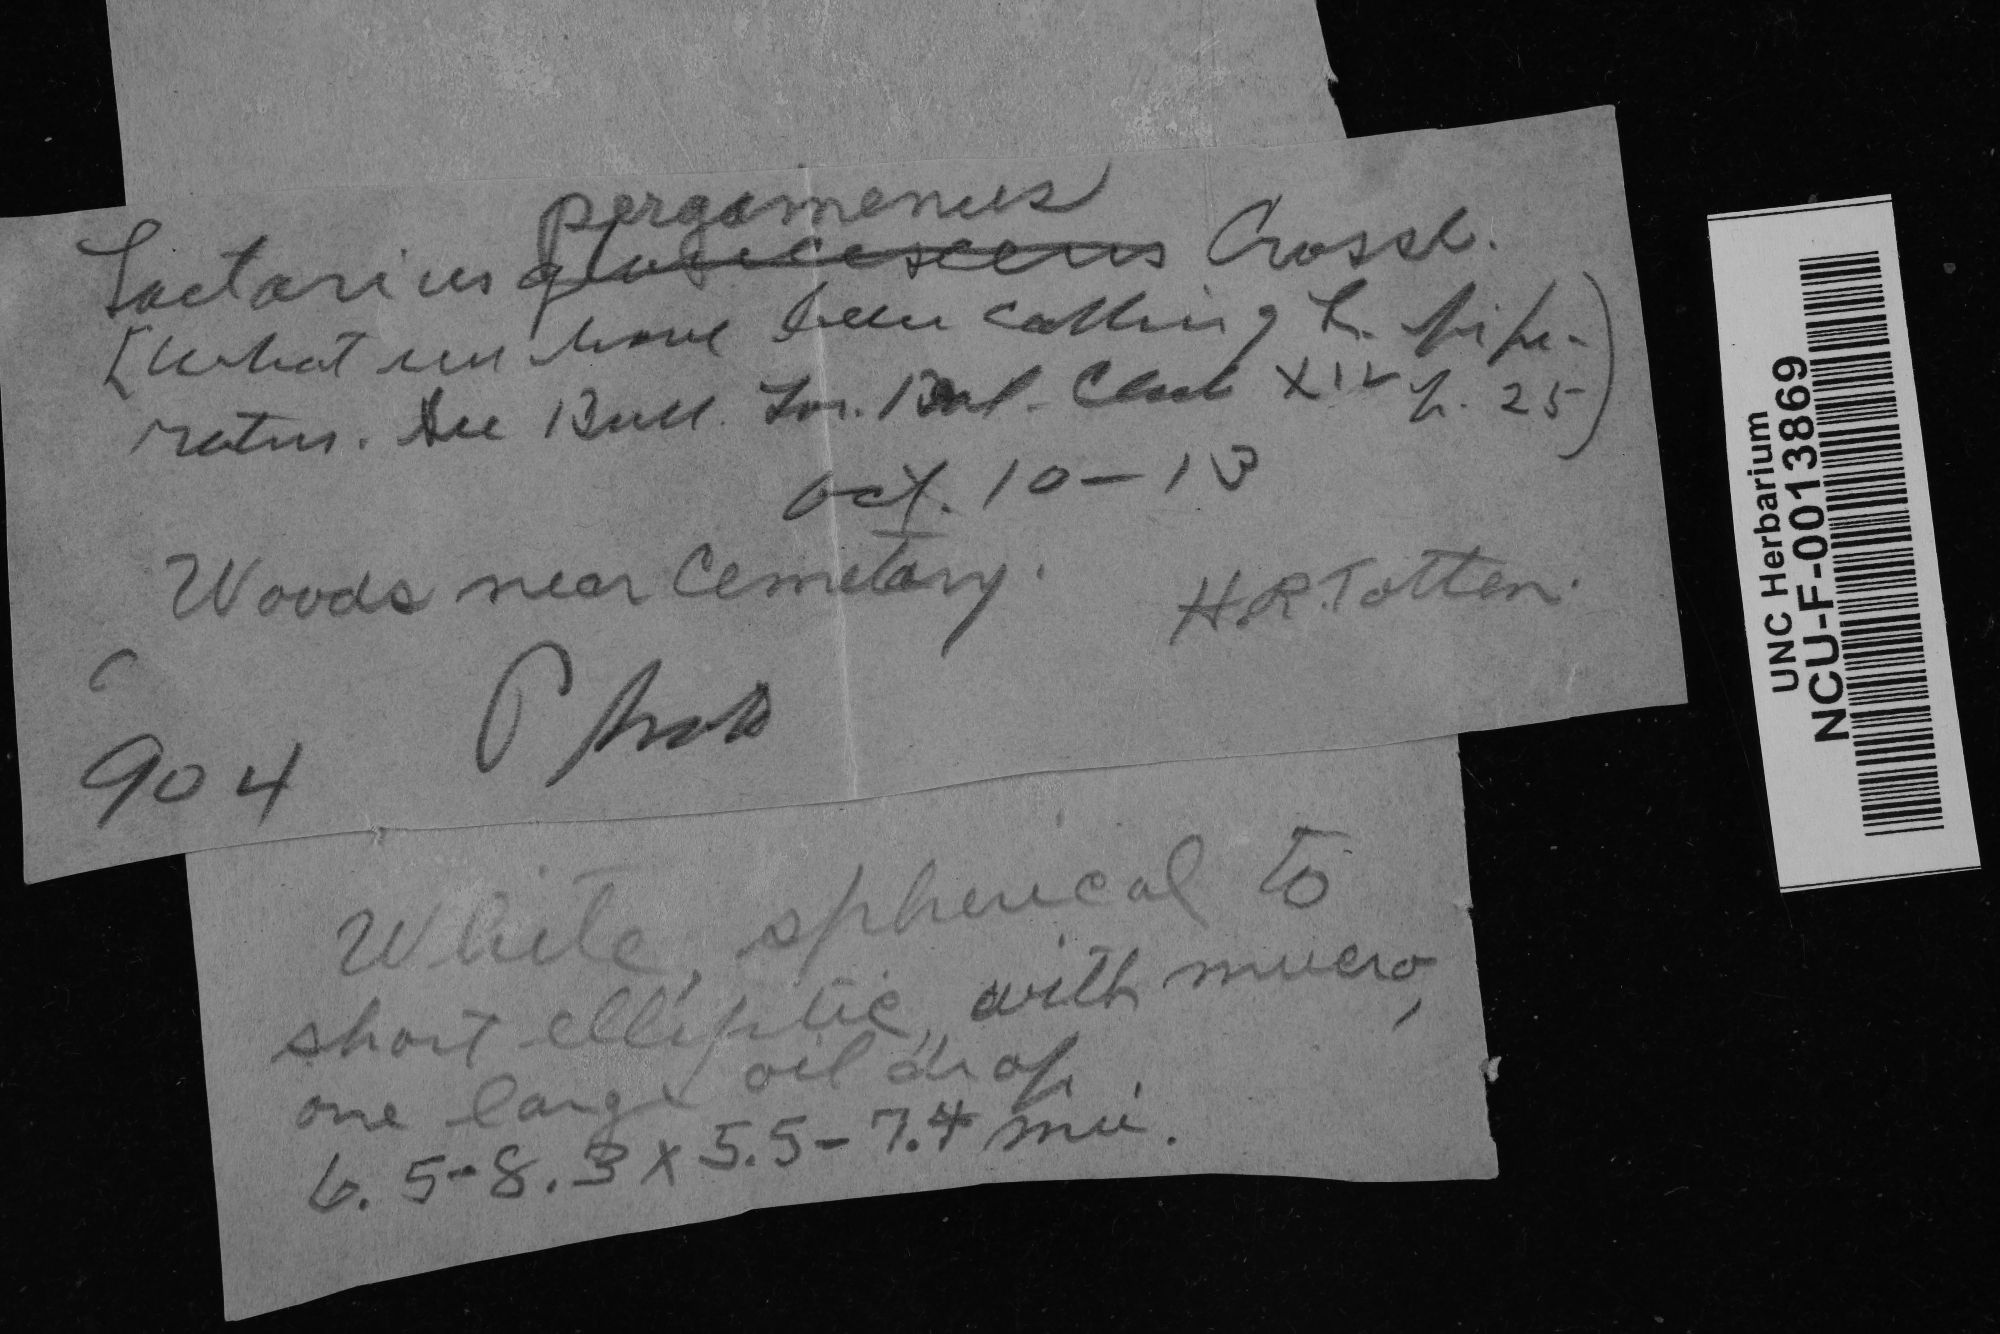 pergamenus
Lactarius glaucescens Crossl.
[What we have been calling L. pipe-
ratus. See Bull. Tor. Bot. Club XIV p. 25)
Oct. 10-13
Woods near Cemetary.
H.R. Totten.
904
Photo
White, spherical to
short elliptic, with mucro,
one large oil drop.
6.5-8.3 x 5.5-7.4 mu.
UNC Herbarium
NCU-F-0013869